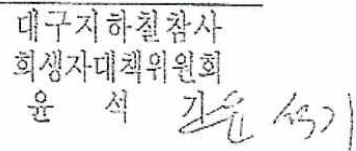 대구지하철참사
희생자대책위원회
윤 석 기